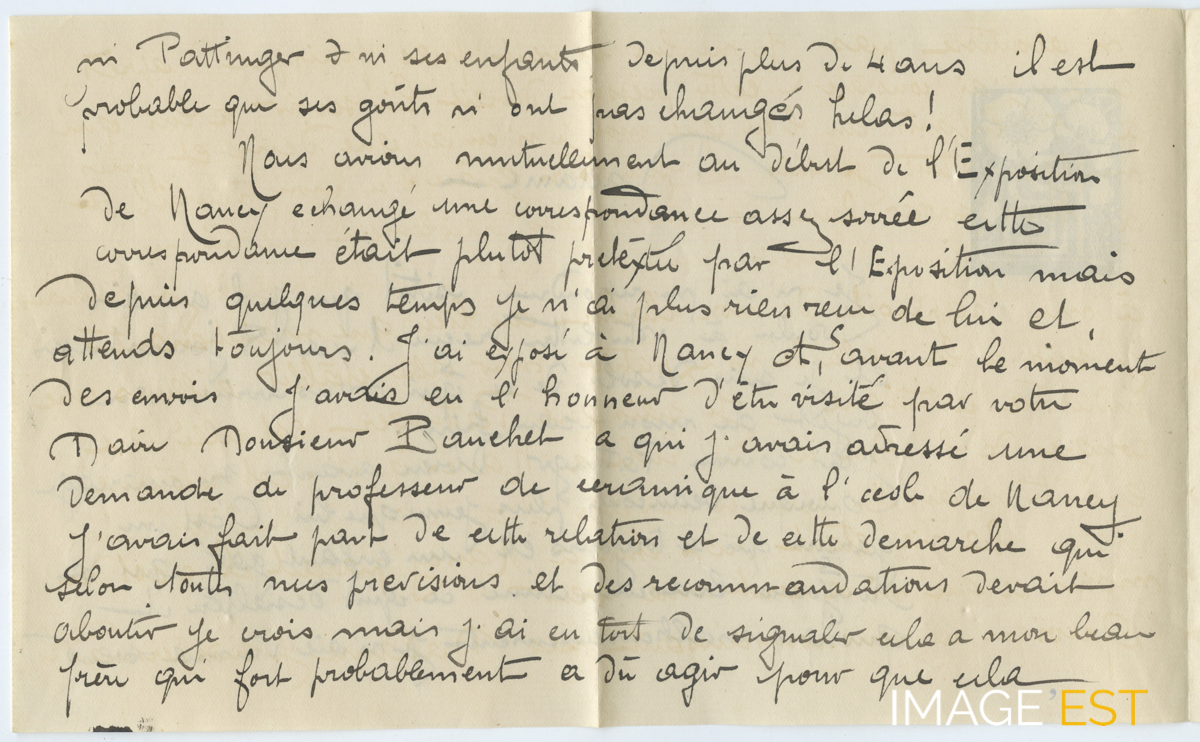 ni Pattinger & ni ses enfants depuis plus de 4 ans il est
probable que ses goûts n'ont pas changés helas!
Nous avions mutuellement au début de l'Exposition
de Nancy echangé une correspondance assez serrée cette
correspondance était plutôt pretextée par l'Exposition mais
depuis quelques temps je n'ai plus rien reçu de lui et,
attends toujours. J'ai exposé à Nancy et, avant le moment
des envois J'avais eu l'honneur d'être visité par votre
Maire Monsieur Beauchet a qui j'avais adressé une
demande de professeur de ceramique à l'ecole de Nancy
J'avais fait part de cette relation et de cette demarche qui
selon toutes mes previsions et des recommandations devait
aboutir je crois mais j'ai eu tort de signaler cela a mon beau
frère qui fort probablement a dû agir pour que cela
IMAGE EST